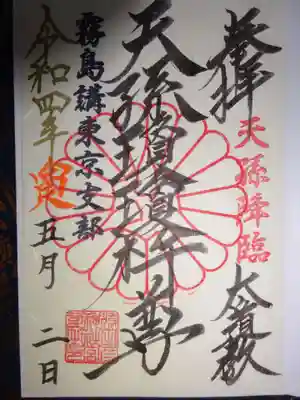 奉拝
天孫降臨
天孫瓊瓊杵尊
霧島講東京支部
令和四年
五月二日